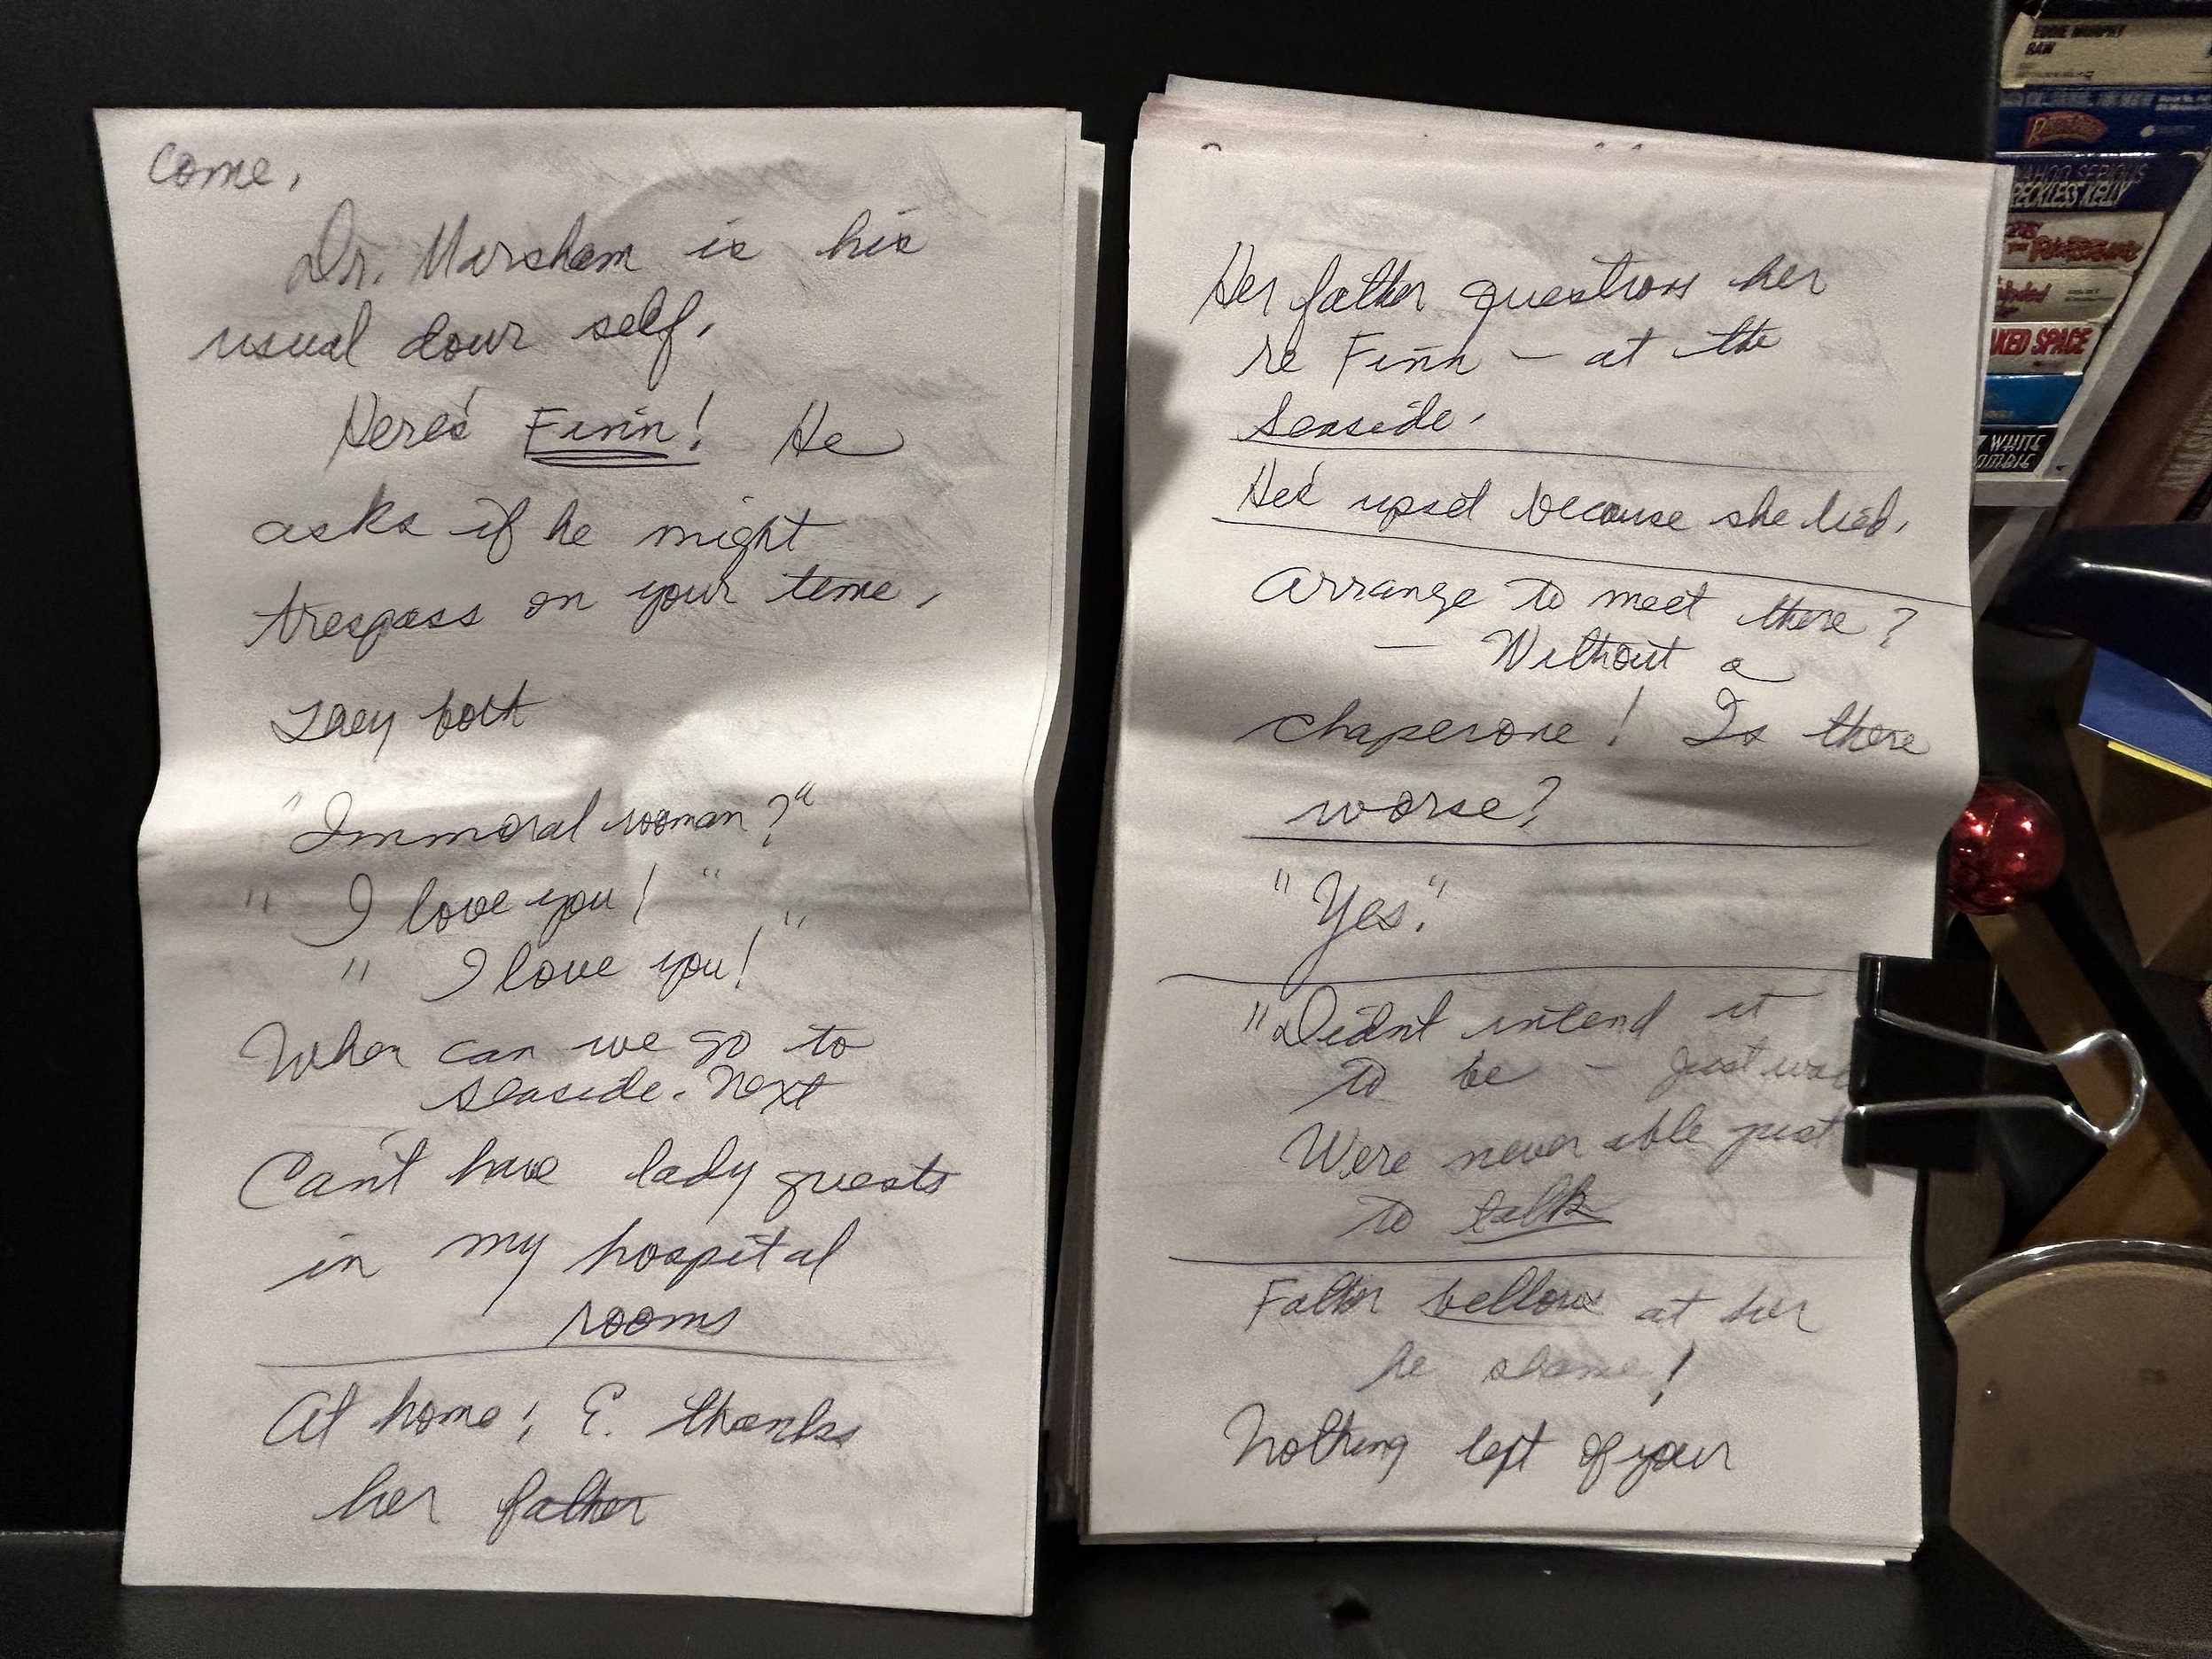 come,
Dr. Marsham is his
usual dour self.
Here's Finn! He
asks if he might
trespass on your time.
They both
"Immoral woman?"
"I love you!"
"I love you!"
When can we go to
seaside. Next
Can't have lady guests
in my hospital
rooms
At home; E. thanks
her father
Her father questions her
re Finn — at the
seaside.
He's upset because she lied.
Arrange to meet there?
— Without a
chaperone! Is there
worse?
"Yes."
"Didn't intend it
to be — just was
Were never able just
to talk
Father bellows at her
he shame!
Nothing left of your
EDDIE MURPHY
RAW
YAHOO SERIOUS
RECKLESS KELLY
NAKED SPACE
WHITE
ZOMBIE